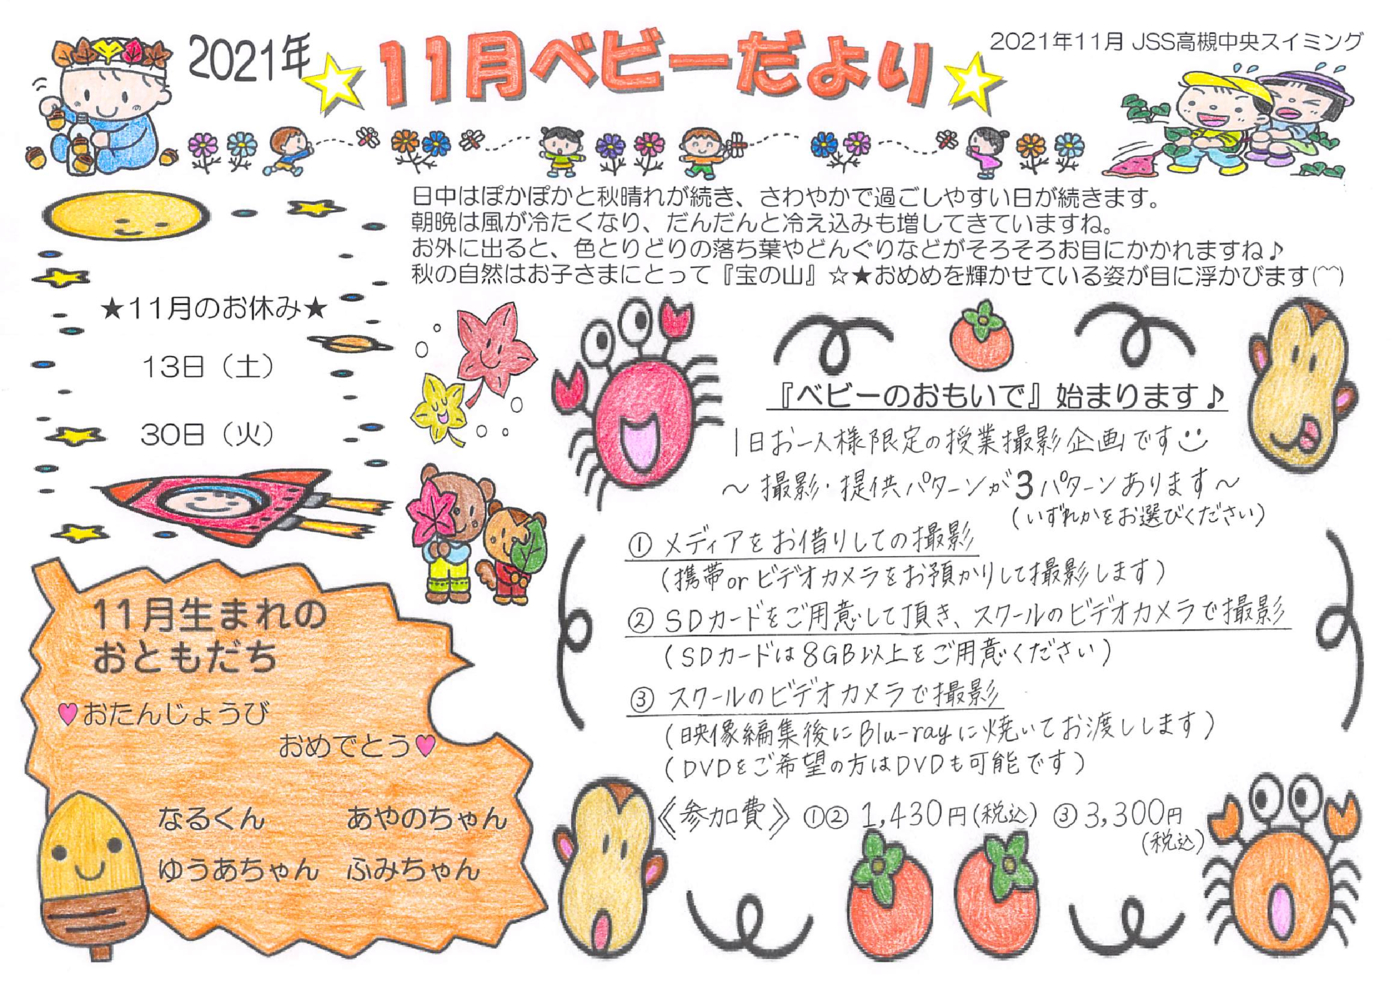 2021年
☆11月ベビーだより☆
2021年11月 JSS高槻中央スイミング
日中はぽかぽかと秋晴れが続き、さわやかで過ごしやすい日が続きます。
朝晩は風が冷たくなり、だんだんと冷え込みも増してきていますね。
お外に出ると、色とりどりの落ち葉やどんぐりなどがそろそろお目にかかれますね♪
秋の自然はお子さまにとって『宝の山』☆★おめめを輝かせている姿が目に浮かびます(^^)
★11月のお休み★
13日（土）
30日（火）
11月生まれの
おともだち
♥おたんじょうび
おめでとう♥
なるくん　あやのちゃん
ゆうあちゃん　ふみちゃん
『ベビーのおもいで』始まります♪
1日お一人様限定の授業撮影企画です
～撮影・提供パターンが3パターンあります～
(いずれかをお選びください)
① メディアをお借りしての撮影
(携帯orビデオカメラをお預かりして撮影します)
② SDカードをご用意して頂き、スクールのビデオカメラで撮影
(SDカードは8GB以上をご用意ください)
③ スクールのビデオカメラで撮影
(映像編集後にBlu-rayに焼いてお渡しします)
(DVDをご希望の方はDVDも可能です)
《参加費》①② 1,430円(税込) ③ 3,300円
(税込)